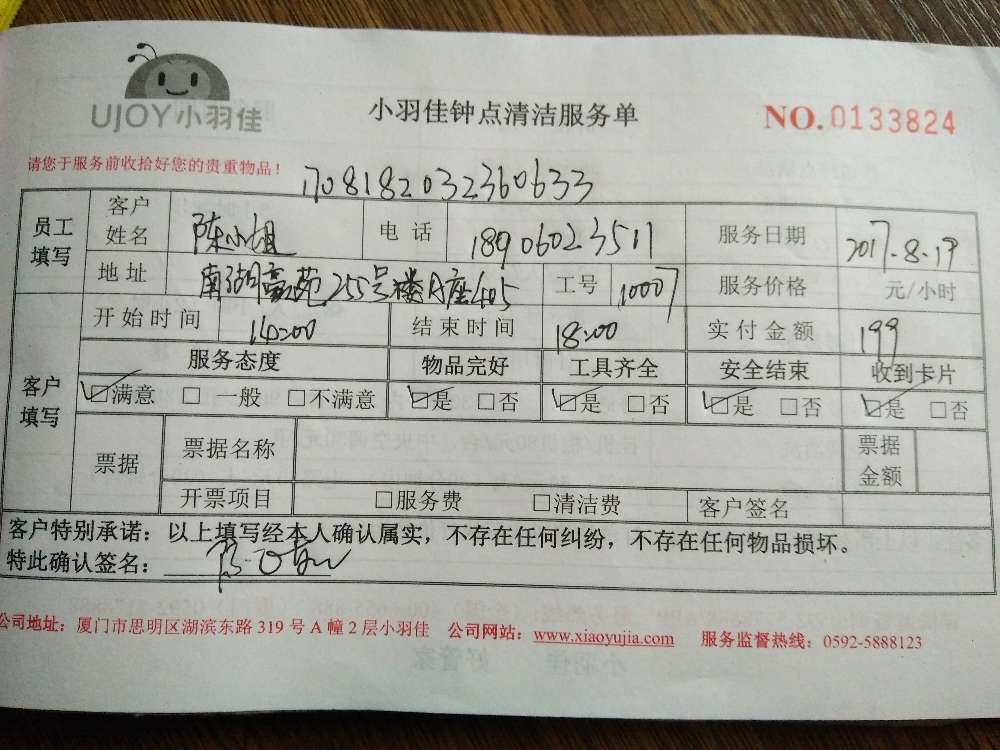 UJOY小羽佳
小羽佳钟点清洁服务单
NO.0133824
请您于服务前收拾好您的贵重物品！
1708182032360633
员工填写 客户姓名 陈小姐 电话 18906023511 服务日期 2017.8.19
地址 南湖豪苑255号楼A座405 工号 10007 服务价格 元/小时
客户填写 开始时间 14:00 结束时间 18:00 实付金额 199
服务态度 物品完好 工具齐全 安全结束 收到卡片
☑满意 □一般 □不满意 ☑是 □否 ☑是 □否 ☑是 □否 ☑是 □否
票据 票据名称 票据金额
开票项目 □服务费 □清洁费 客户签名
客户特别承诺：以上填写经本人确认属实，不存在任何纠纷，不存在任何物品损坏。
特此确认签名：
公司地址：厦门市思明区湖滨东路 319 号 A 幢 2 层小羽佳 公司网站：www.xiaoyujia.com 服务监督热线：0592-5888123